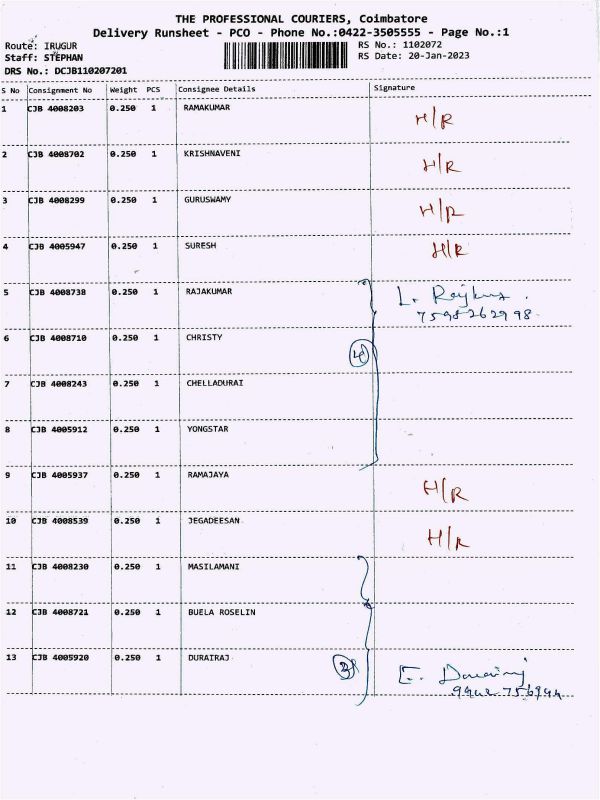 THE PROFESSIONAL COURIERS, Coimbatore
Delivery Runsheet - PCO - Phone No.:0422-3505555 - Page No.:1
Route: IRUGUR RS No.: 1102072
Staff: STEPHAN RS Date: 20-Jan-2023
DRS No.: DCJB110207201
S No Consignment No Weight PCS Consignee Details Signature
1 CJB 4008203 0.250 1 RAMAKUMAR H/R
2 CJB 4008702 0.250 1 KRISHNAVENI H/R
3 CJB 4008299 0.250 1 GURUSWAMY H/R
4 CJB 4005947 0.250 1 SURESH H/R
5 CJB 4008738 0.250 1 RAJAKUMAR L.
7598262998
6 CJB 4008710 0.250 1 CHRISTY
4
7 CJB 4008243 0.250 1 CHELLADURAI
8 CJB 4005912 0.250 1 YONGSTAR
9 CJB 4005937 0.250 1 RAMAJAYA H/R
10 CJB 4008539 0.250 1 JEGADEESAN H/R
11 CJB 4008230 0.250 1 MASILAMANI
12 CJB 4008721 0.250 1 BUELA ROSELIN
13 CJB 4005920 0.250 1 DURAIRAJ E.